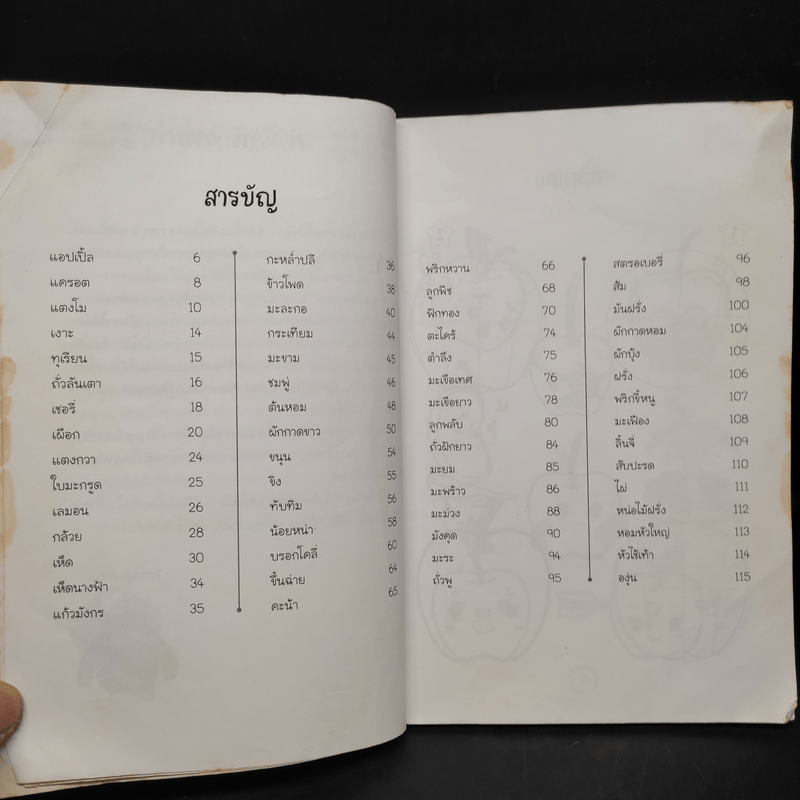 สารบัญ
แอปเปิ้ล 6
แครอต 8
แตงโม 10
เงาะ 14
ทุเรียน 15
ถั่วลันเตา 16
เชอรี่ 18
เผือก 20
แตงกวา 24
ใบมะกรูด 25
เลมอน 26
กล้วย 28
เห็ด 30
เห็ดนางฟ้า 34
แก้วมังกร 35
กะหล่ำปลี 36
ข้าวโพด 38
มะละกอ 40
กระเทียม 44
มะขาม 45
ชมพู่ 46
ต้นหอม 48
ผักกาดขาว 50
ขนุน 54
ขิง 55
ทับทิม 56
น้อยหน่า 58
บรอกโคลี่ 60
ขึ้นฉ่าย 64
คะน้า 65
พริกหวาน 66
ลูกพีช 68
ฟักทอง 70
ตะไคร้ 74
ตำลึง 75
มะเขือเทศ 76
มะเขือยาว 78
ลูกพลับ 80
ถั่วฝักยาว 84
มะยม 85
มะพร้าว 86
มะม่วง 88
มังคุด 90
มะระ 94
ถั่วพู 95
สตรอเบอรี่ 96
ส้ม 98
มันฝรั่ง 100
ผักกาดหอม 104
ผักบุ้ง 105
ฝรั่ง 106
พริกขี้หนู 107
มะเฟือง 108
ลิ้นจี่ 109
สับปะรด 110
ไผ่ 111
หน่อไม้ฝรั่ง 112
หอมหัวใหญ่ 113
หัวไช้เท้า 114
องุ่น 115